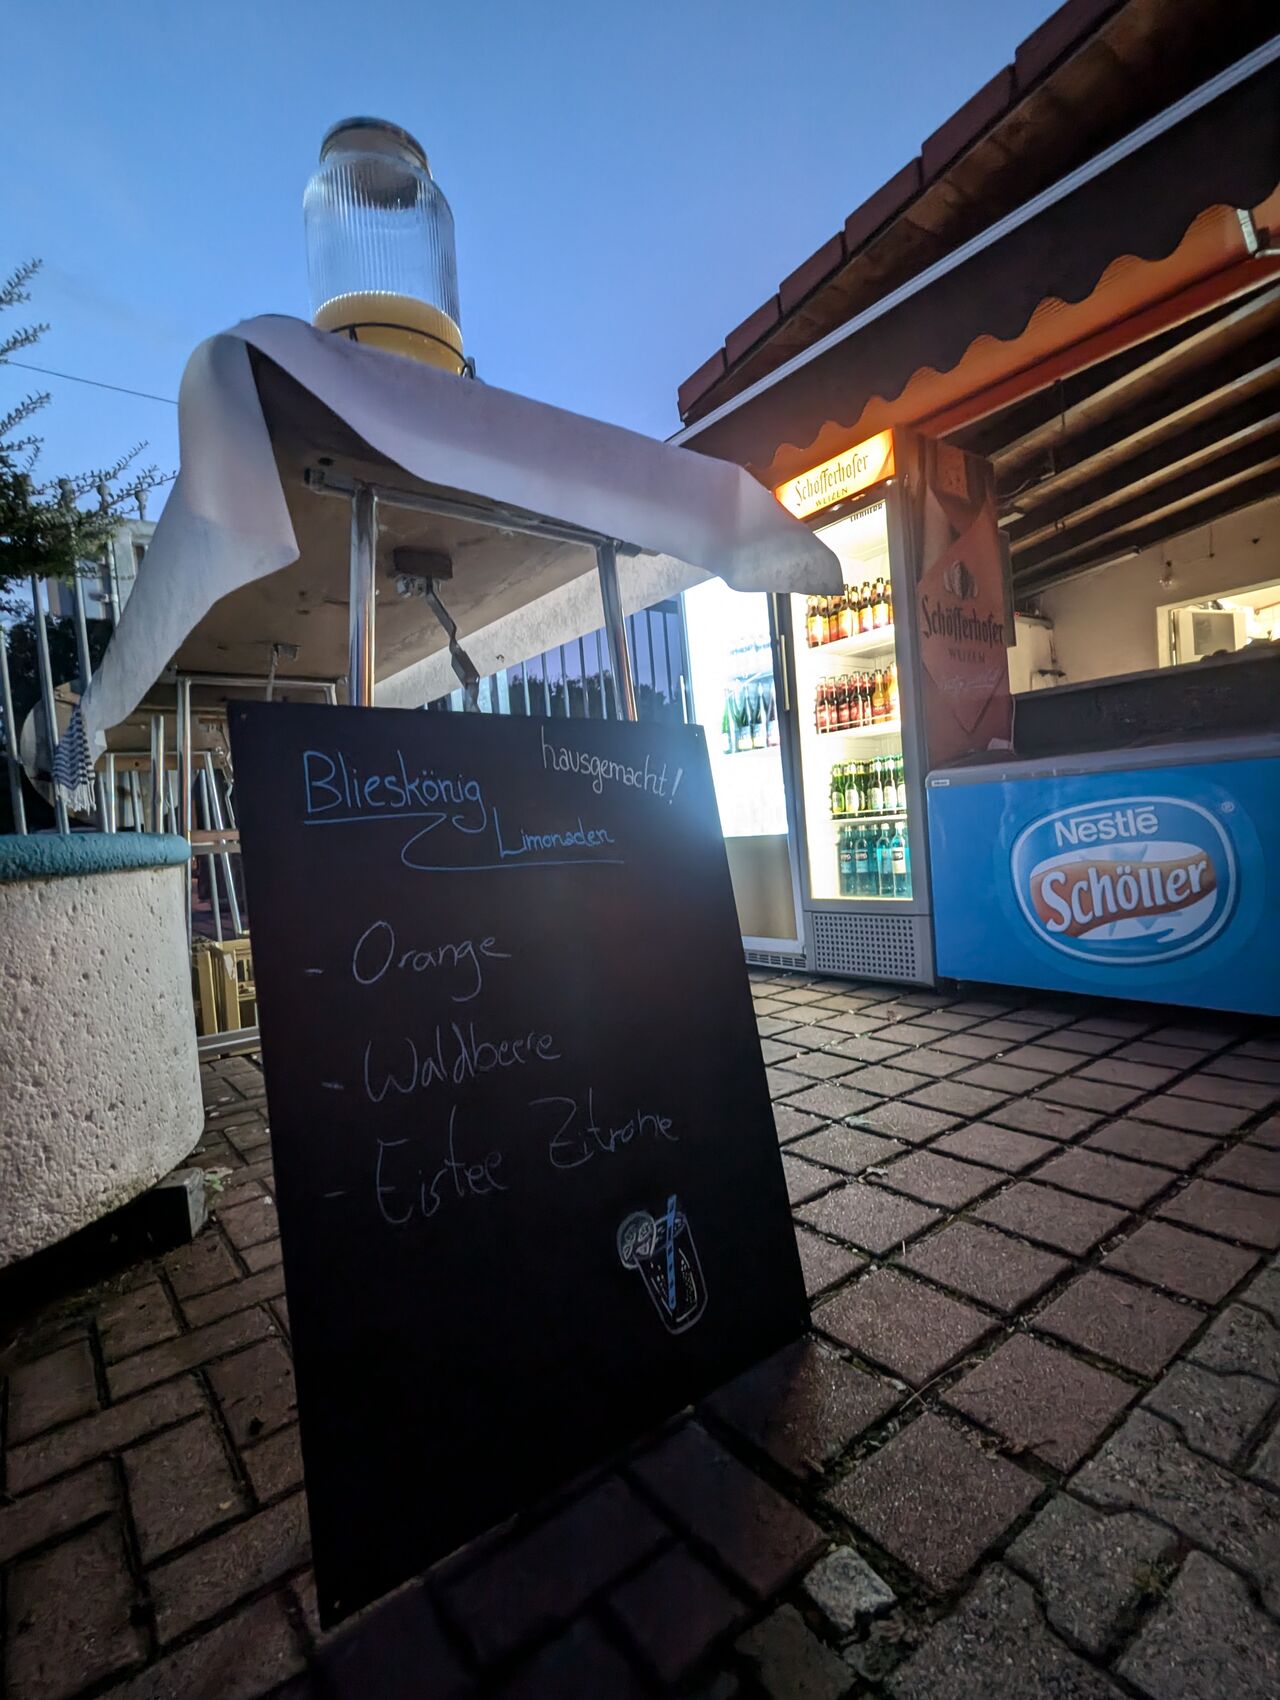 Blieskönig
hausgemacht!
Limonaden
- Orange
- Waldbeere
- Eistee Zitrone
Schöfferhofer
WEIZEN
LIEBHERR
Schöfferhofer
WEIZEN
Nestlé
Schöller
®